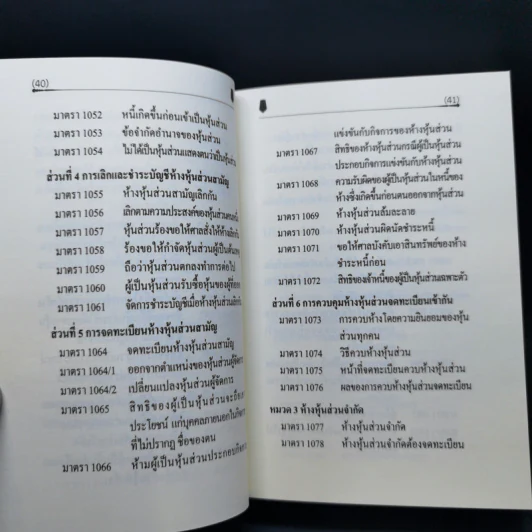 (40)
มาตรา 1052 หนี้เกิดขึ้นก่อนเข้าเป็นหุ้นส่วน
มาตรา 1053 ข้อจำกัดอำนาจของหุ้นส่วน
มาตรา 1054 ไม่ได้เป็นหุ้นส่วนแสดงตนว่าเป็นหุ้นส่วน
ส่วนที่ 4 การเลิกและชำระบัญชีห้างหุ้นส่วนสามัญ
มาตรา 1055 ห้างหุ้นส่วนสามัญเลิกกัน
มาตรา 1056 เลิกตามความประสงค์ของหุ้นส่วน
มาตรา 1057 หุ้นส่วนร้องขอให้ศาลสั่งให้ห้างเลิกกัน
มาตรา 1058 ร้องขอให้กำจัดหุ้นส่วนผู้เป็นต้นเหตุ
มาตรา 1059 ถือว่าหุ้นส่วนตกลงทำการต่อไป
มาตรา 1060 ผู้เป็นหุ้นส่วนรับซื้อหุ้นของผู้ที่
มาตรา 1061 จัดการชำระบัญชีเมื่อห้างหุ้นส่วนเลิกกัน
ส่วนที่ 5 การจดทะเบียนห้างหุ้นส่วนสามัญ
มาตรา 1064 จดทะเบียนห้างหุ้นส่วนสามัญ
มาตรา 1064/1 ออกจากตำแหน่งของหุ้นส่วนผู้จัดการ
มาตรา 1064/2 เปลี่ยนแปลงหุ้นส่วนผู้จัดการ
มาตรา 1065 สิทธิของผู้เป็นหุ้นส่วนจะถือเอา
ประโยชน์ แก่บุคคลภายนอกในกิจการ
ที่ไม่ปรากฏ ชื่อของตน
มาตรา 1066 ห้ามผู้เป็นหุ้นส่วนประกอบกิจการ
(41)
แข่งขันกับกิจการของห้างหุ้นส่วน
มาตรา 1067 สิทธิของห้างหุ้นส่วนกรณีผู้เป็นหุ้นส่วน
ประกอบกิจการแข่งขันกับห้างหุ้นส่วน
มาตรา 1068 ความรับผิดของผู้เป็นหุ้นส่วนในหนี้ของ
ห้างซึ่งเกิดขึ้นก่อนตนออกจากหุ้นส่วน
มาตรา 1069 ห้างหุ้นส่วนล้มละลาย
มาตรา 1070 ห้างหุ้นส่วนผิดนัดชำระหนี้
มาตรา 1071 ขอให้ศาลบังคับเอาสินทรัพย์ของห้าง
ชำระหนี้ก่อน
มาตรา 1072 สิทธิของเจ้าหนี้ของผู้เป็นหุ้นส่วนเฉพาะตัว
ส่วนที่ 6 การควบคุมห้างหุ้นส่วนจดทะเบียนเข้ากัน
มาตรา 1073 การควบห้างโดยความยินยอมของหุ้น
ส่วนทุกคน
มาตรา 1074 วิธีควบห้างหุ้นส่วน
มาตรา 1075 หน้าที่จดทะเบียนควบห้างหุ้นส่วน
มาตรา 1076 ผลของการควบห้างหุ้นส่วนจดทะเบียน
หมวด 3 ห้างหุ้นส่วนจำกัด
มาตรา 1077 ห้างหุ้นส่วนจำกัด
มาตรา 1078 ห้างหุ้นส่วนจำกัดต้องจดทะเบียน